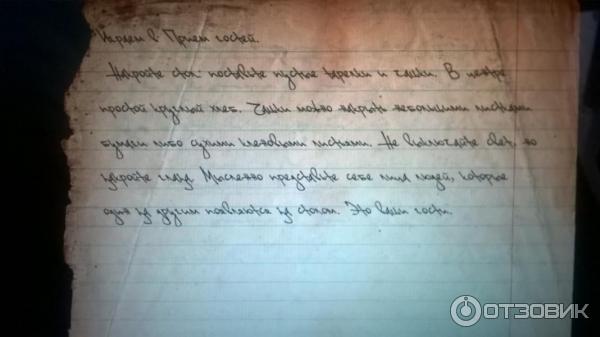 Играем в Прием гостей.
Накройте стол: поставьте пустые тарелки и чашки. В центре
простой круглый хлеб. Чашки можно накрыть небольшими листками
бумаги либо сухими кленовыми листьями. Не выключайте свет, но
закройте глаза. Мысленно представьте себе лица людей, которые
один за другим появляются за столом. Это ваши гости.
ОТЗОВИК